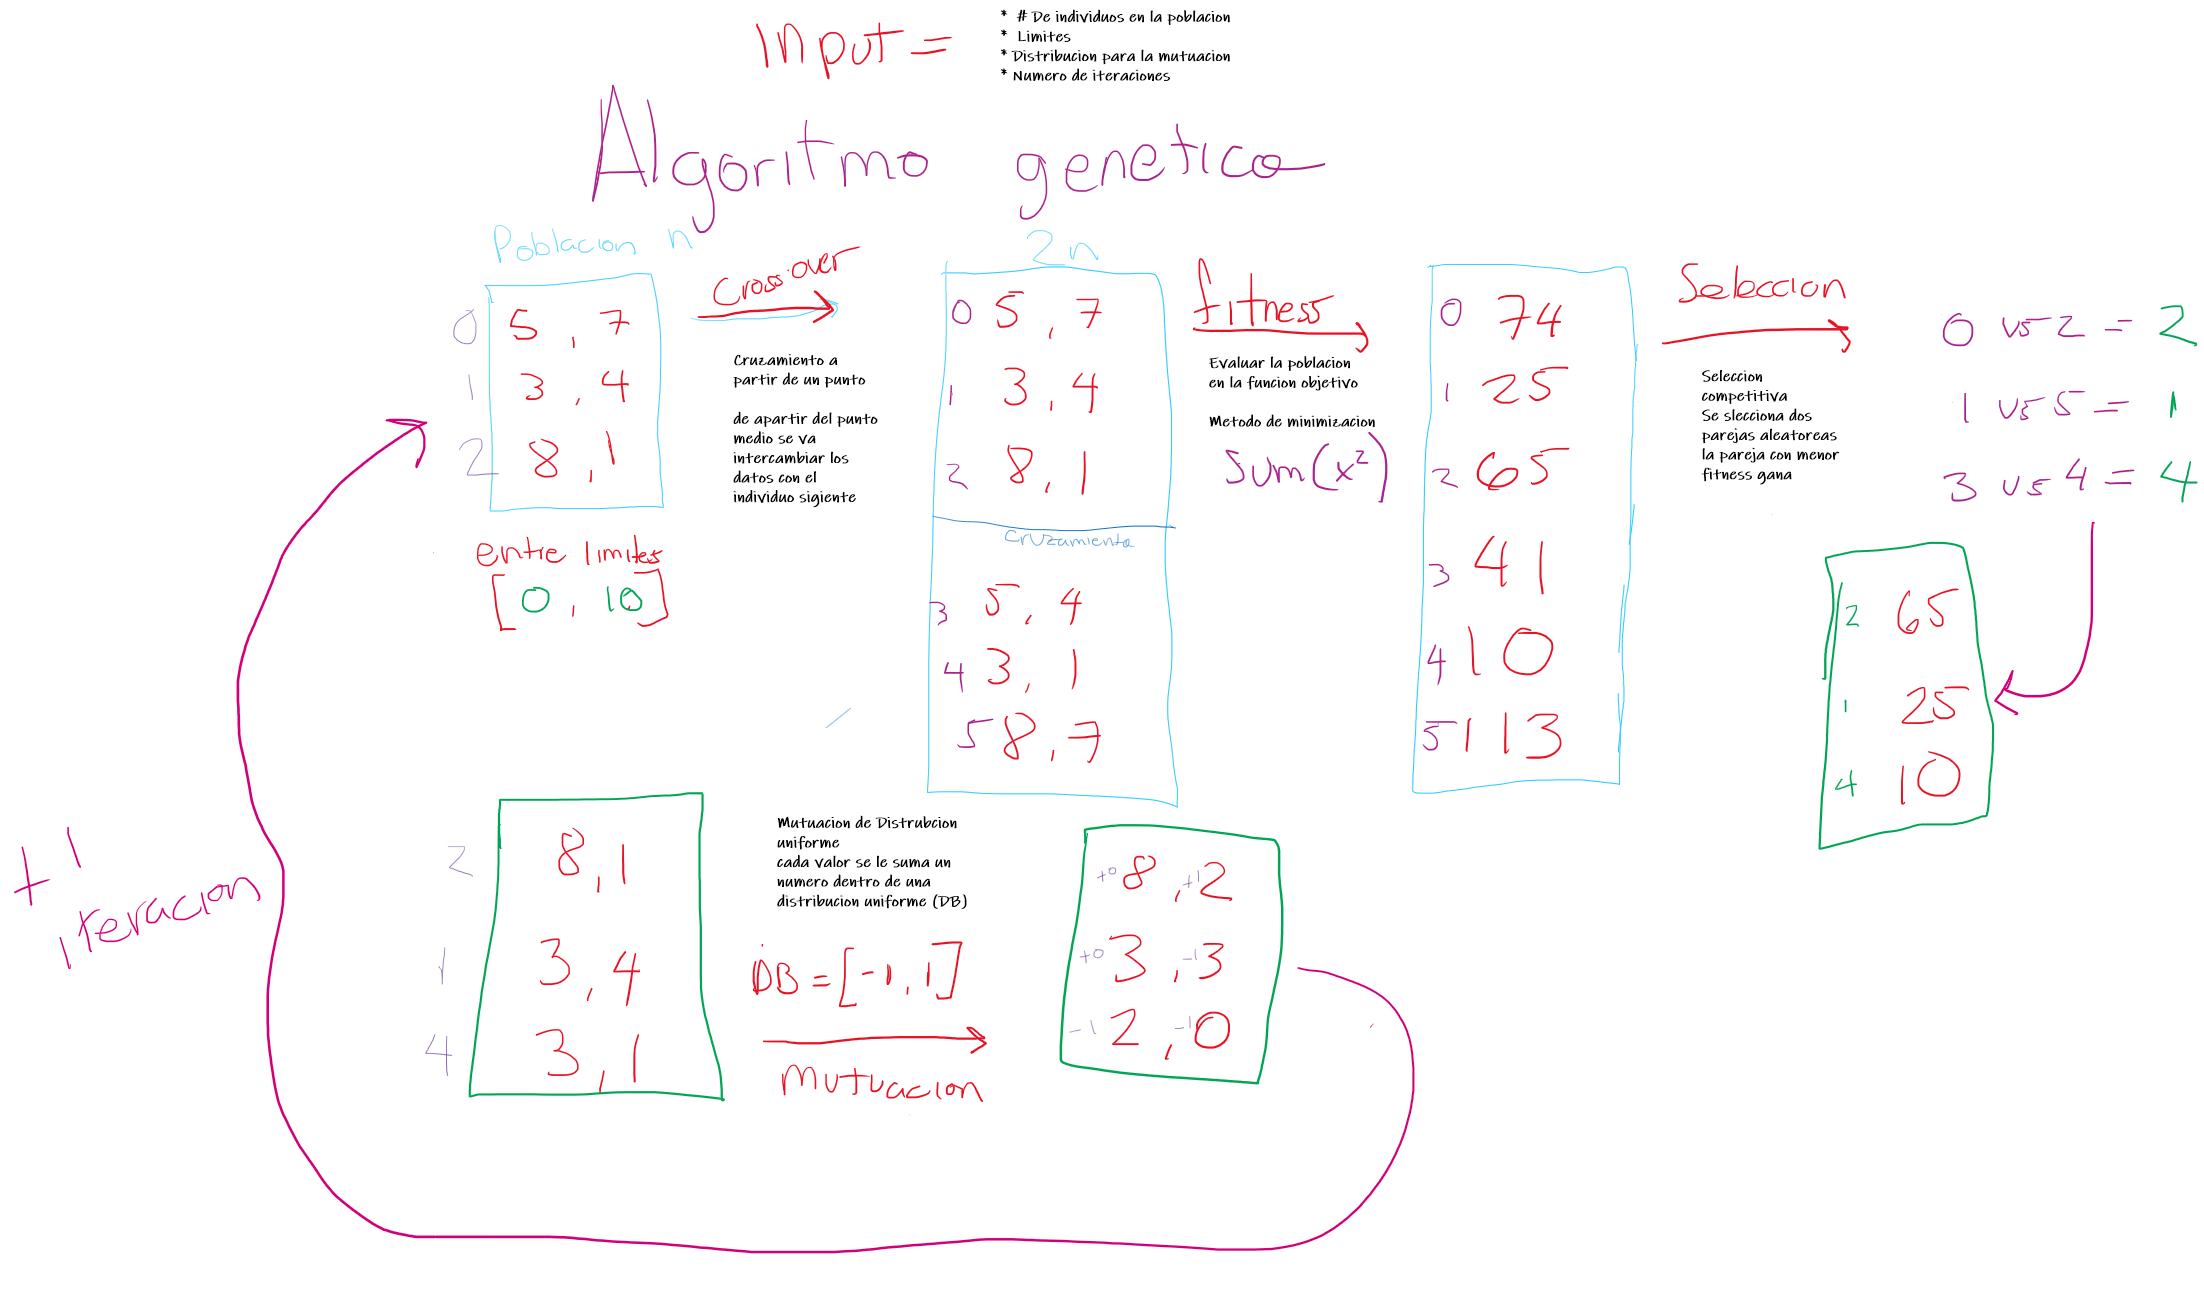 Input =
* # De individuos en la poblacion
* Limites
* Distribucion para la mutuacion
* Numero de iteraciones
Algoritmo genetico
Poblacion n
0 5 , 7
1 3 , 4
2 8 , 1
entre limites
[ 0 , 10 ]
Crossover
Cruzamiento a
partir de un punto
de apartir del punto
medio se va
intercambiar los
datos con el
individuo sigiente
2n
0 5 , 7
1 3 , 4
2 8 , 1
Cruzamiento
3 5 , 4
4 3 , 1
5 8 , 7
fitness
Evaluar la poblacion
en la funcion objetivo
Metodo de minimizacion
Sum(x²)
0 74
1 25
2 65
3 41
4 10
5 113
Seleccion
Seleccion
competitiva
Se slecciona dos
parejas aleatoreas
la pareja con menor
fitness gana
0 vs 2 = 2
1 vs 5 = 1
3 vs 4 = 4
2 65
1 25
4 10
2 8 , 1
1 3 , 4
4 3 , 1
Mutuacion de Distrubcion
uniforme
cada valor se le suma un
numero dentro de una
distribucion uniforme (DB)
DB = [-1, 1]
Mutuacion
+0 8 , +1 2
+0 3 , -1 3
-1 2 , -1 0
+1
iteracion